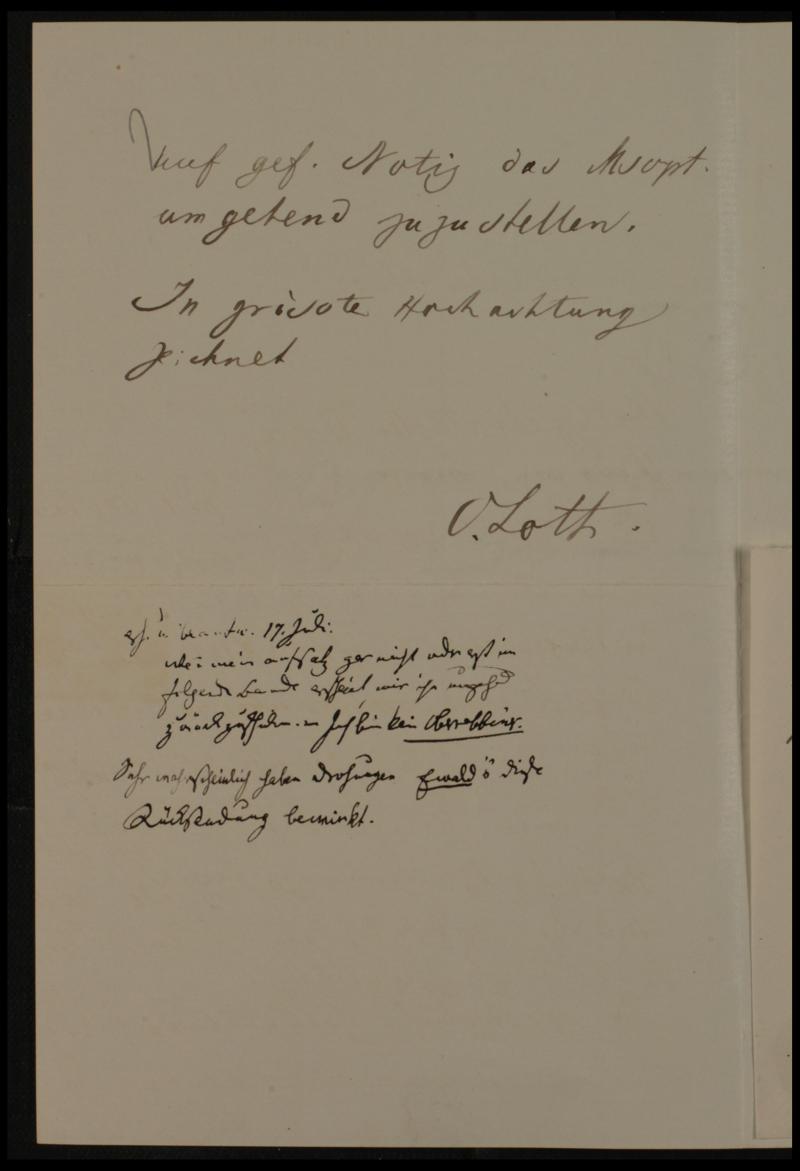 auf gef. Notiz das Mscpt.
umgehend zuzustellen.
In grösster Hochachtung
zeichnet
O. Loth.
erh. u. beantw. 17. Juli.
mein Aufsatz gar nicht oder erst im
folgenden Bande erscheint mir ihn umgehend
zurückzuschicken. Ich bin kein Oberrabbiner.
Sehr wahrscheinlich haben Drohungen Ewald's diese
Rücksendung bewirkt.